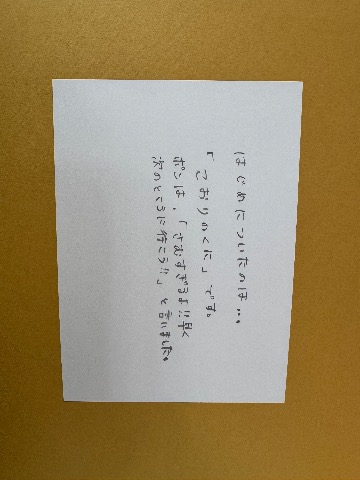 はじめについたのは…
「こおりのくに」です。
ポンは、「さむすぎるよ!!早く
次のところに行こう!!」と言いました。